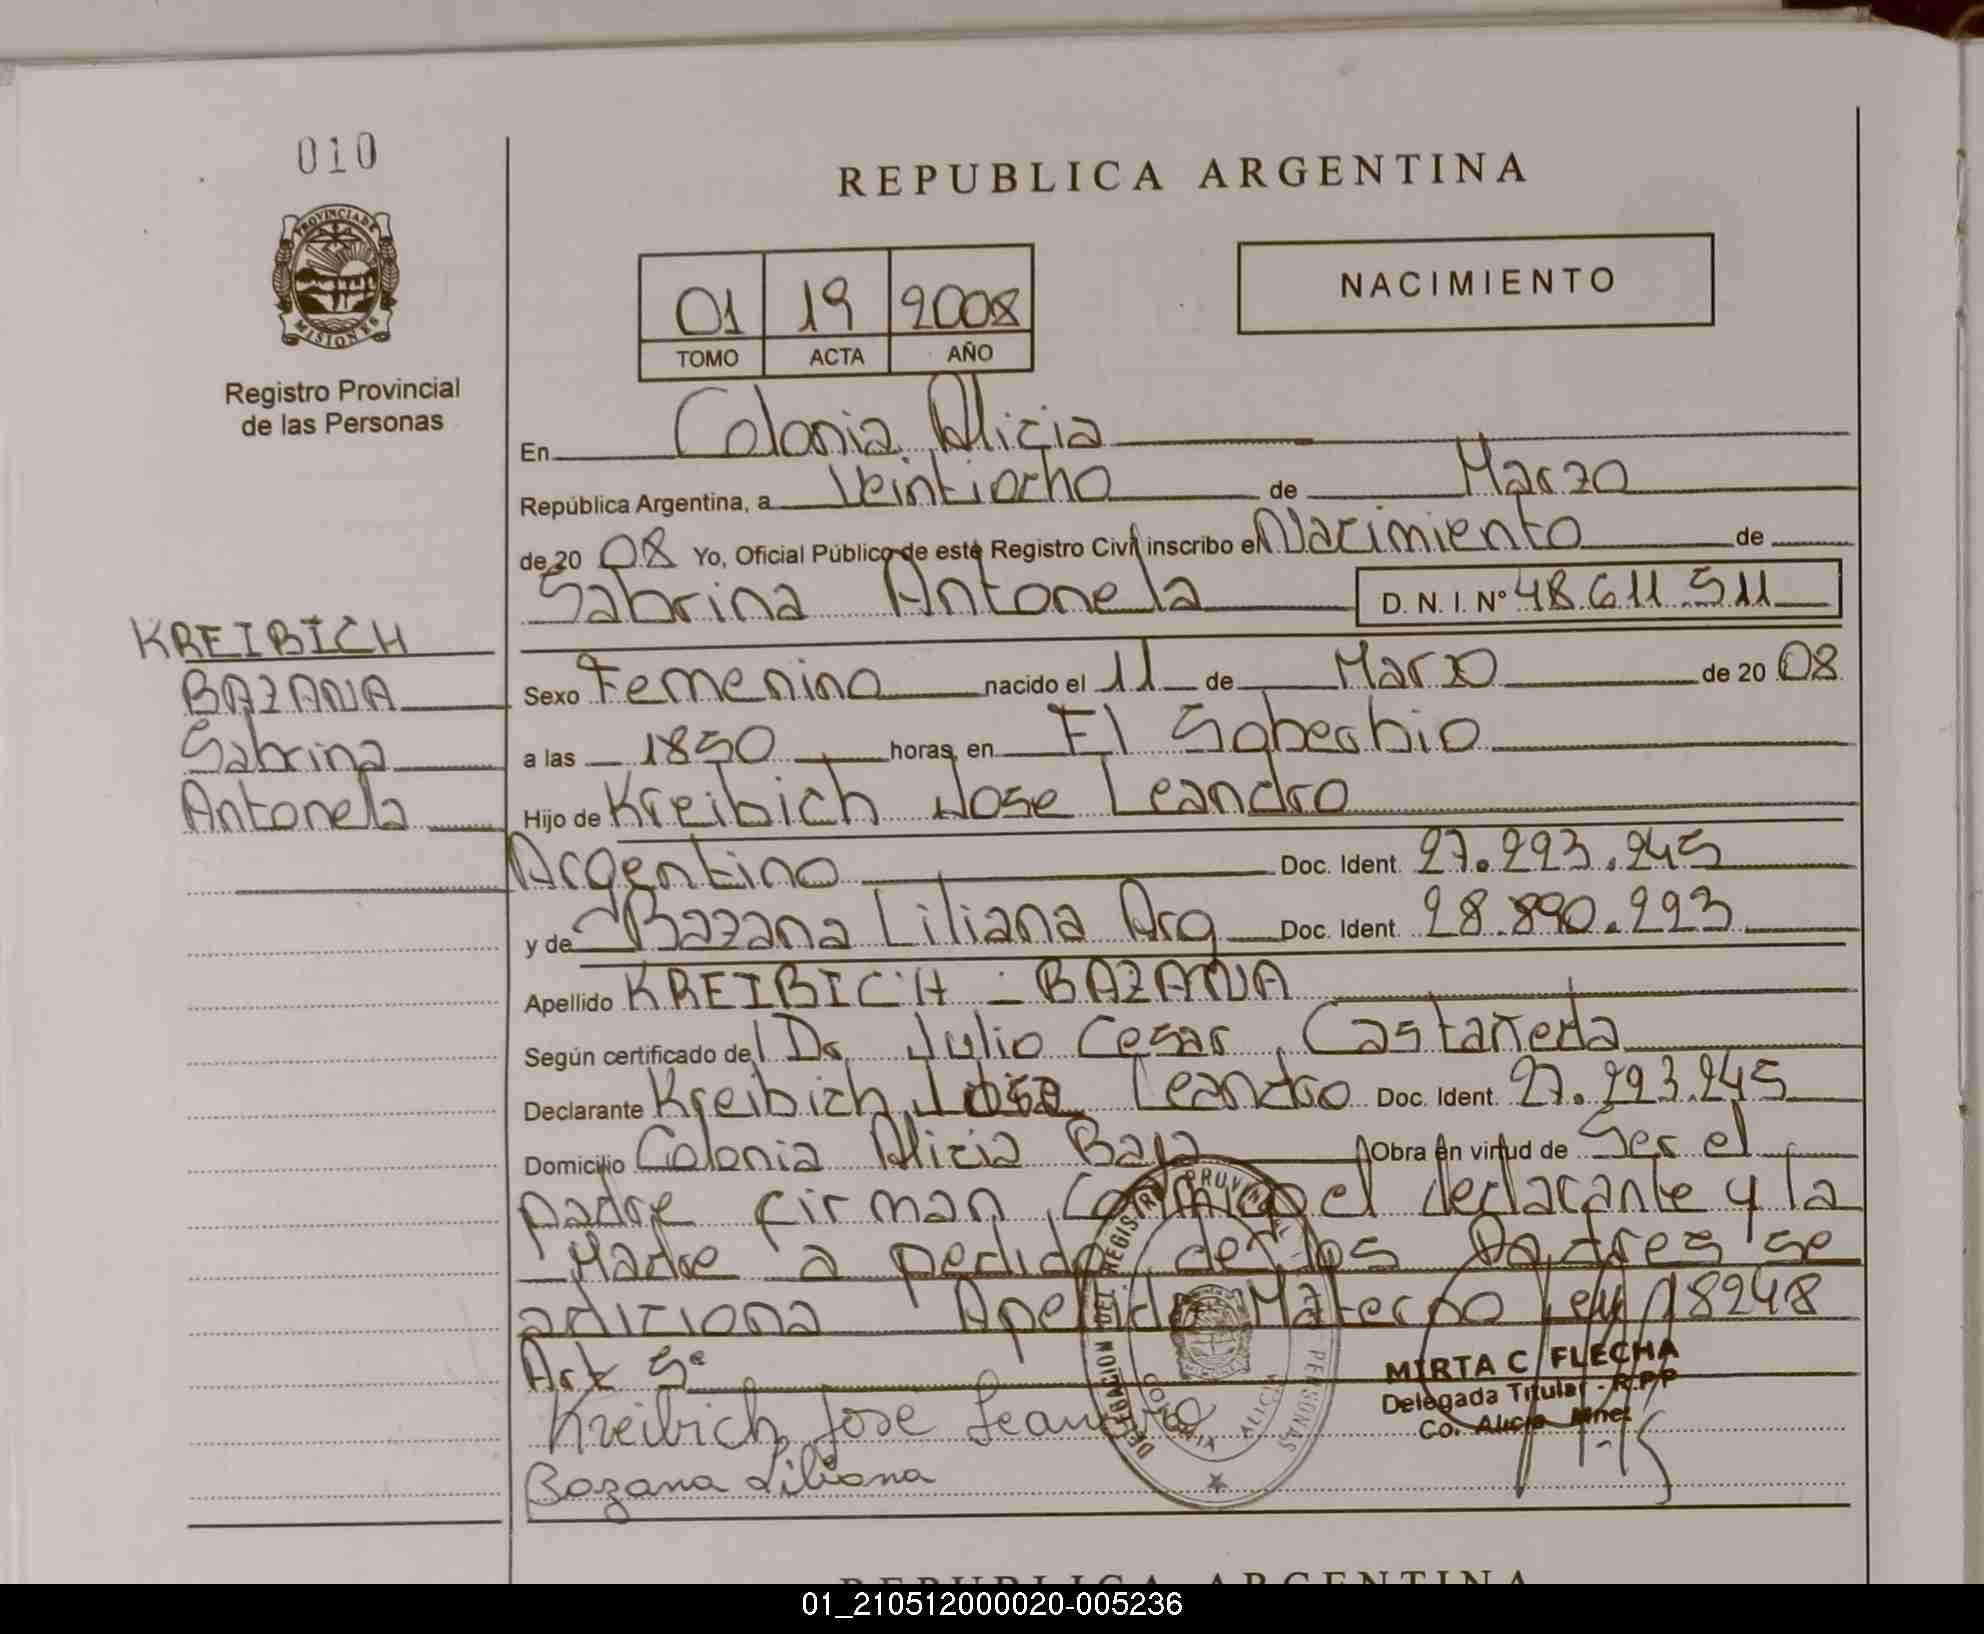 010
REPUBLICA ARGENTINA
PROVINCIA DE
MISIONES
Registro Provincial
de las Personas
01 19 2008
TOMO ACTA AÑO
NACIMIENTO
En Colonia Alicia
República Argentina, a Veintiocho de Marzo
de 20 08 Yo, Oficial Público de este Registro Civil inscribo el Nacimiento de
Sabrina Antonela D. N. I. Nº 48.611.511
KREIBICH
BAZANA
Sabrina
Antonela
Sexo Femenino nacido el 11 de Marzo de 20 08
a las 1850 horas, en El Soberbio
Hijo de Kreibich Jose Leandro
Argentino Doc. Ident. 27.293.245
y de Bazana Liliana Arg Doc. Ident. 28.890.293
Apellido KREIBICH - BAZANA
Según certificado del Dr Julio Cesar Castañeda
Declarante Kreibich Jose Leandro Doc. Ident. 27.293.245
Domicilio Colonia Alicia Baja Obra en virtud de Ser el
padre firman conmigo el declarante y la
Madre a pedido de los Padres se
adiciona Apellido Materno Ley 18248
Art 5º
Kreibich Jose Leandro
Bazana Liliana
DELEGACION DEL REGISTRO PROVINCIAL PERSONAS
COLONIA ALICIA
MIRTA C FLECHA
Delegada Titular - R.P.P
Co. Alicia Mnes
REPUBLICA ARGENTINA
01_210512000020-005236